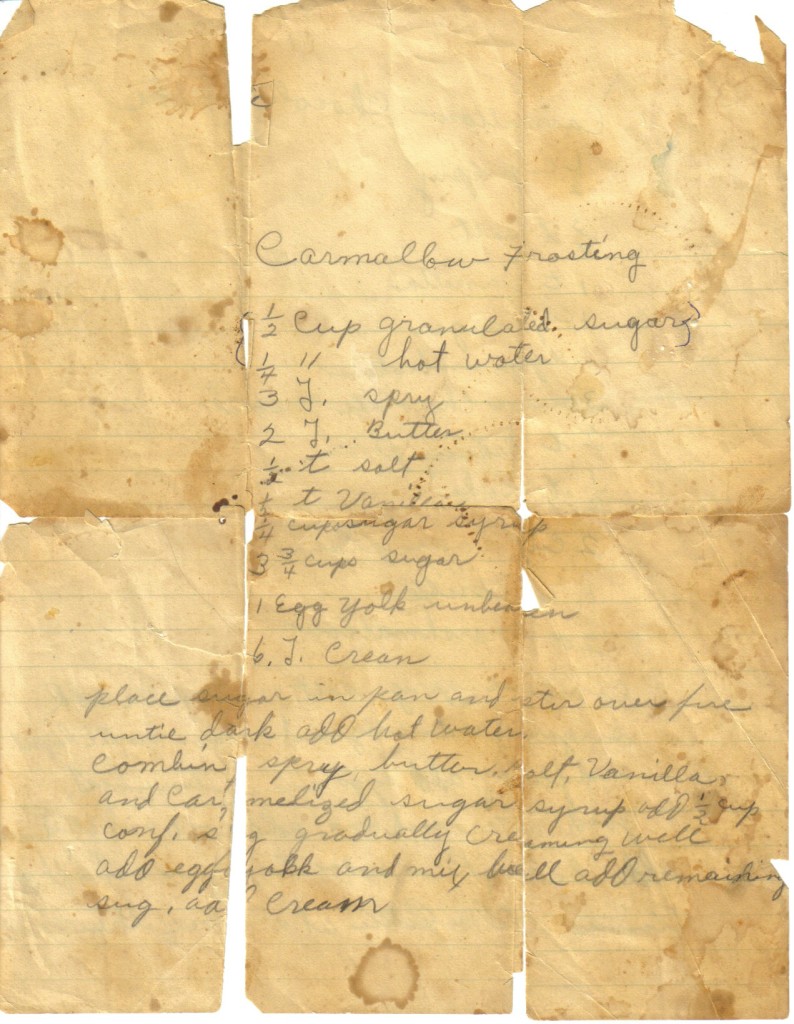 Carmallow Frosting
{ 1/2 Cup granulated sugar }
{ 1/4 " hot water
3 T. spry
2 T. Butter
1/2 t salt
t Vanilla
1/4 cup sugar syrup
3 3/4 cups sugar
1 Egg yolk unbeaten
6. T. Cream
place sugar in pan and stir over fire
untie dark add hot water.
Combin spry, butter, salt, Vanilla,
and Car melized sugar syrup add 1/2 cup
conf. s g gradually creaming well
add egg yolk and mix well add remaining
sug, add Cream